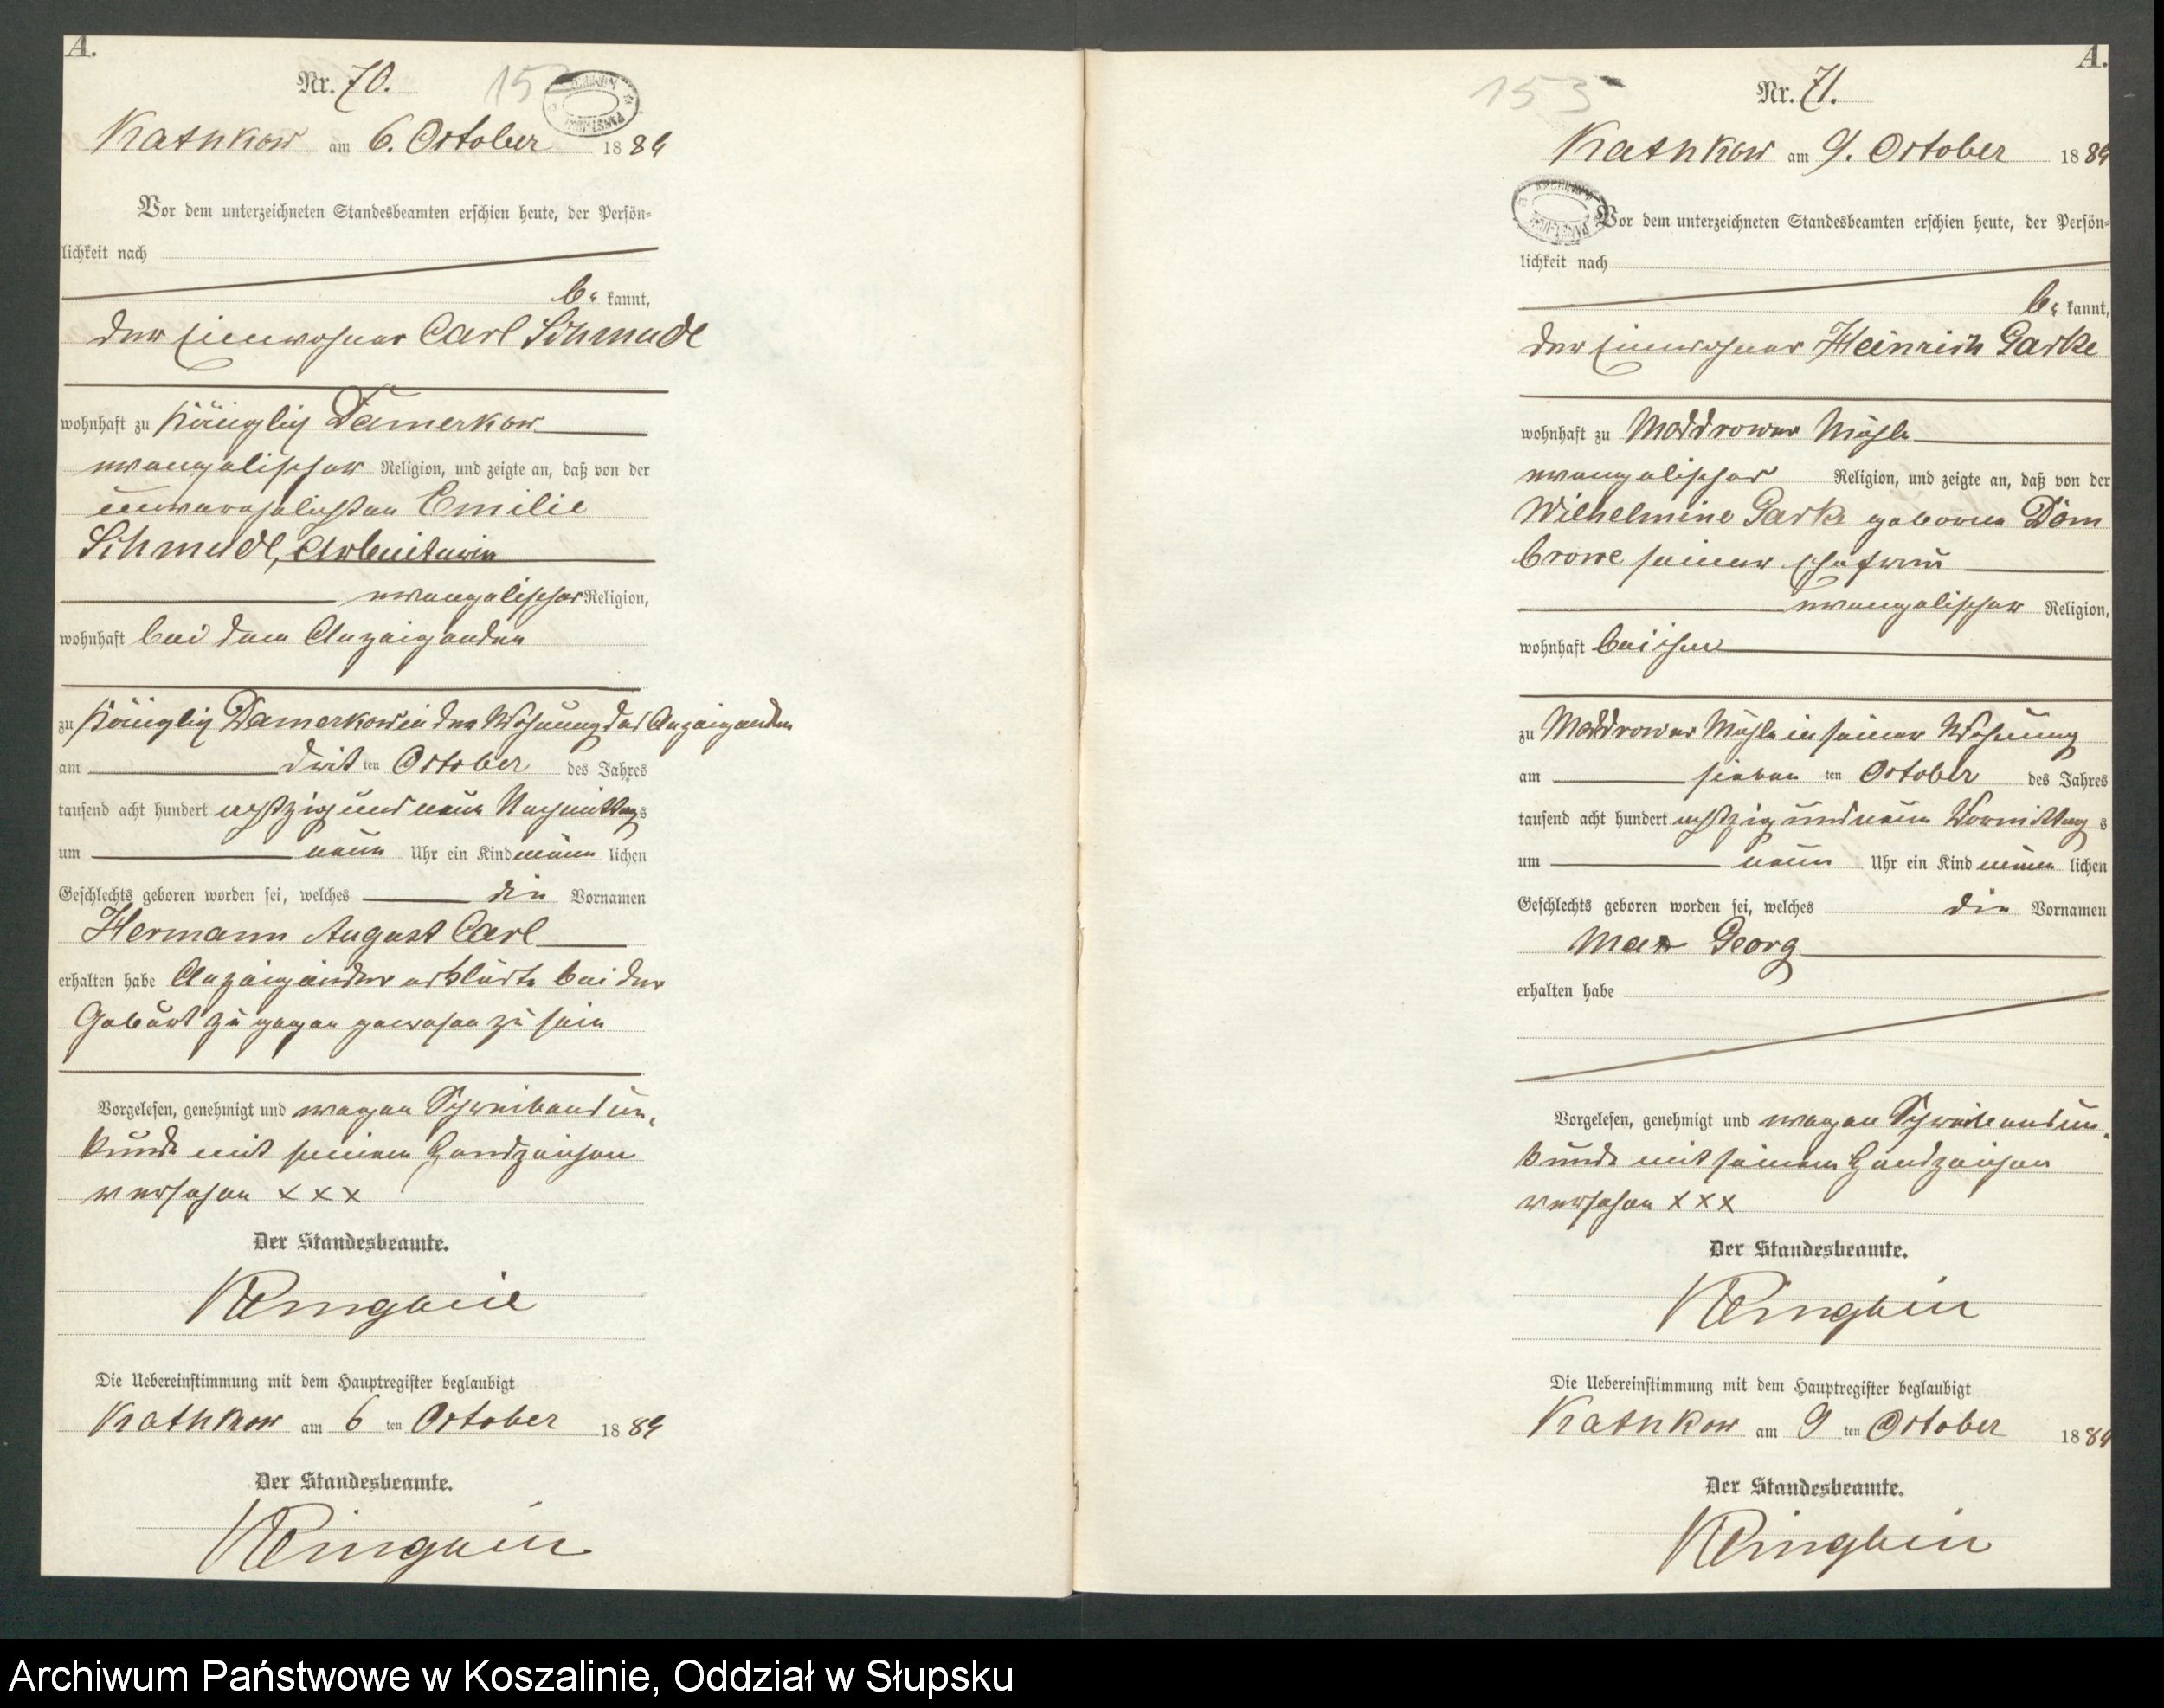 A.
Nr. 70.
15
Kathkow am 6. October 1889
Vor dem unterzeichneten Standesbeamten erschien heute, der Persön-
lichkeit nach
be kannt,
der Einwohner Carl Schmude
wohnhaft zu Königlich Damerkow
evangelischer Religion, und zeigte an, daß von der
unverehelichten Emilie
Schmude, Arbeiterin
evangelischer Religion,
wohnhaft bei dem Anzeigenden
zu Königlich Damerkow in der Wohnung des Anzeigenden
am dritten October des Jahres
tausend acht hundert achtzig und neun Nachmittags
um neun Uhr ein Kind männlichen
Geschlechts geboren worden sei, welches die Vornamen
Hermann August Carl
erhalten habe Anzeigender erklärte bei der
Geburt zugegen gewesen zu sein
Vorgelesen, genehmigt und wegen Schreibensun-
kunde mit seinem Handzeichen
versehen xxx
Der Standesbeamte.
Die Uebereinstimmung mit dem Hauptregister beglaubigt
Kathkow am 6 ten October 1889
Der Standesbeamte.
A.
153
Nr. 71.
Kathkow am 9. October 1889
Vor dem unterzeichneten Standesbeamten erschien heute, der Persön-
lichkeit nach
be kannt,
der Einwohner Heinrich Garke
wohnhaft zu Moddrower Mühle
evangelischer Religion, und zeigte an, daß von der
Wilhelmine Garke geborene Dom
browe seiner Ehefrau
evangelischer Religion,
wohnhaft bei ihm
zu Moddrower Mühle in seiner Wohnung
am siebenten October des Jahres
tausend acht hundert achtzig und neun Vormittags
um neun Uhr ein Kind männlichen
Geschlechts geboren worden sei, welches die Vornamen
Max Georg
erhalten habe
Vorgelesen, genehmigt und wegen Schreibensun-
kunde mit seinem Handzeichen
versehen xxx
Der Standesbeamte.
Die Uebereinstimmung mit dem Hauptregister beglaubigt
Kathkow am 9 ten October 1889
Der Standesbeamte.
Archiwum Państwowe w Koszalinie, Oddział w Słupsku